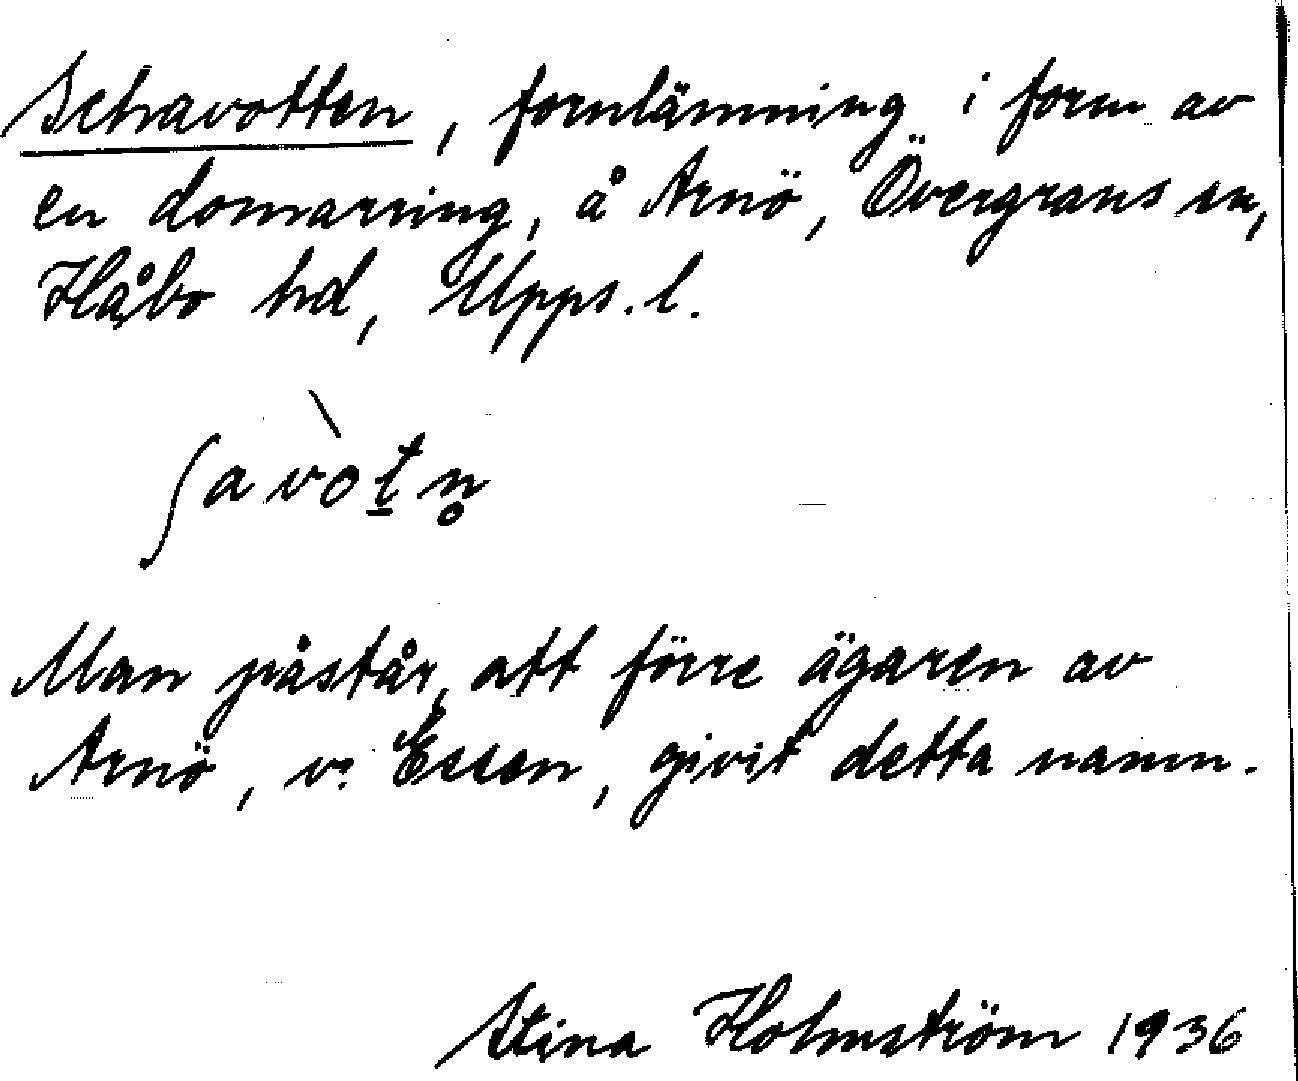 Schavotten, fornlämning i form av
en domarring, å Arnö, Övergrans sn,
Håbo hd, Upps. l.
ʃavòt̲n̥
Man påstår, att förre ägaren av
Arnö, v. Essen, givit detta namn.
Stina Holmström 1936